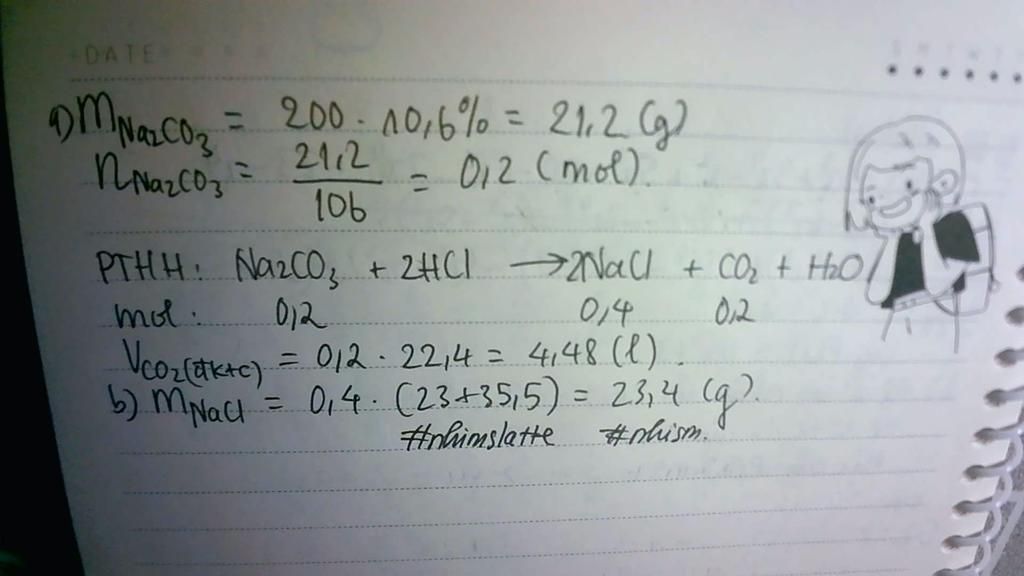 DATE
a) mNa2CO3 = 200 . 10,6% = 21,2 (g)
nNa2CO3 = 21,2 / 106 = 0,2 (mol).
PTHH: Na2CO3 + 2HCl → 2NaCl + CO2 + H2O
mol: 0,2 0,4 0,2
VCO2(đktc) = 0,2 . 22,4 = 4,48 (l).
b) mNaCl = 0,4 . (23+35,5) = 23,4 (g).
#nhimslatte #nhism.